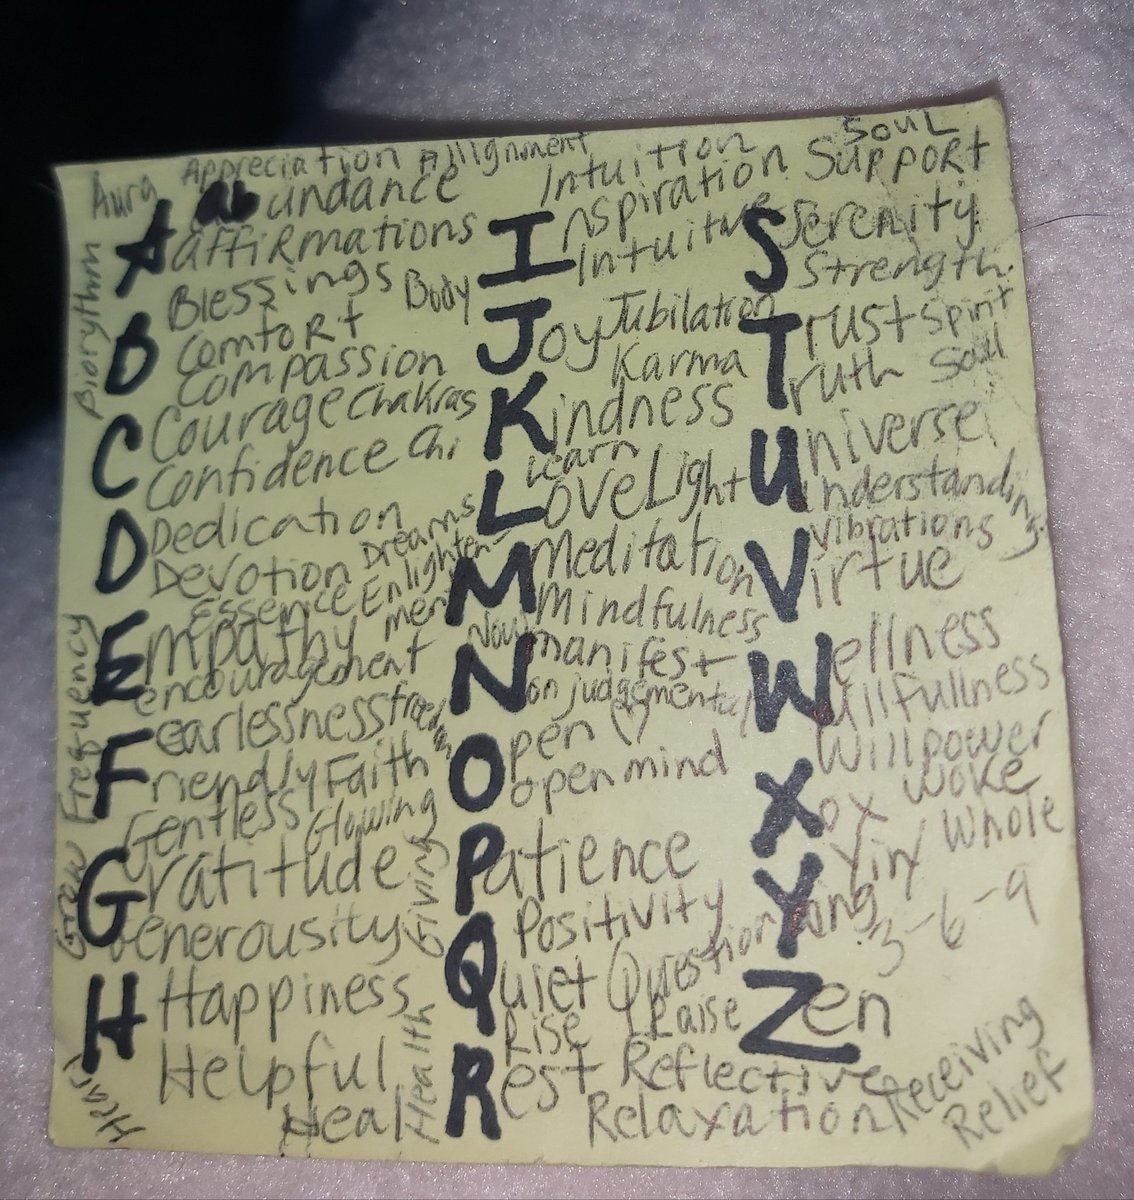 Aura Appreciation Allignment
A abundance
affirmations
Biorythm
B Blessings Body
Comfort
Compassion
C Courage Chakras
Confidence Chi
D Dedication
Devotion Dreams
Essence Enlighten-
ment
Empathy
encouragement
Frequency
Fearlessness freedom
Friendly Faith
Gentless Glowing
Grow
Gratitude Giving
Generousity
H Happiness
Helpful Health
Heart
Heal
Intuition
Inspiration
Intuitive
Joy Jubilation
Karma
Kindness
Learn
Love Light
M Meditation
Mindfulness
Now manifest
Non judgemental
Open ♡
open mind
Patience
Positivity
Quiet Question
Rise Raise
Rest Reflective
Relaxation Receiving
Relief
Soul
Support
Serenity
Strength
Trust Spirit
Truth Soul
Universe
Understanding
Vibrations
Virtue
Wellness
Willfullness
Willpower
woke
Whole
Xox
Yin/
Yang
3-6-9
Zen